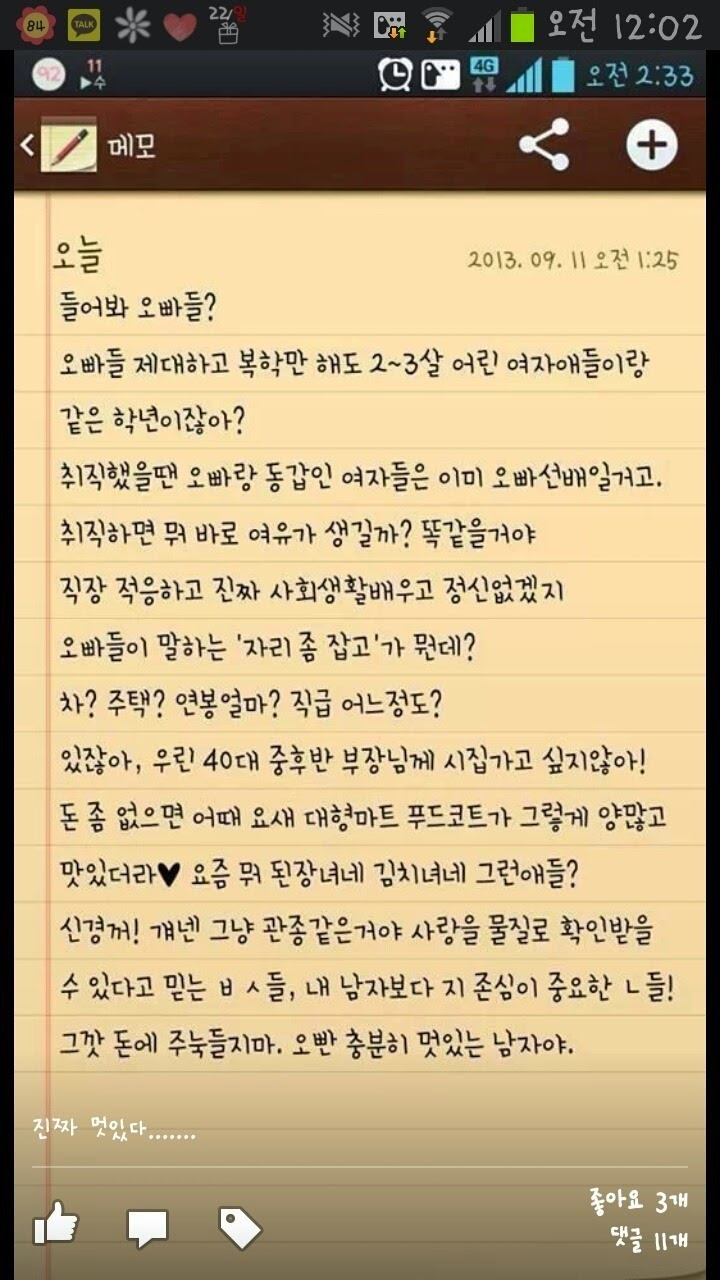 84 TALK 22/일 오전 12:02
92 11 ▶수 4G 오전 2:33
메모
오늘 2013. 09. 11 오전 1:25
들어봐 오빠들?
오빠들 제대하고 복학만 해도 2~3살 어린 여자애들이랑
같은 학년이잖아?
취직했을땐 오빠랑 동갑인 여자들은 이미 오빠선배일거고.
취직하면 뭐 바로 여유가 생길까? 똑같을거야
직장 적응하고 진짜 사회생활배우고 정신없겠지
오빠들이 말하는 '자리 좀 잡고'가 뭔데?
차? 주택? 연봉얼마? 직급 어느정도?
있잖아, 우린 40대 중후반 부장님께 시집가고 싶지않아!
돈 좀 없으면 어때 요새 대형마트 푸드코트가 그렇게 양많고
맛있더라♥ 요즘 뭐 된장녀네 김치녀네 그런애들?
신경꺼! 걔넨 그냥 관종같은거야 사랑을 물질로 확인받을
수 있다고 믿는 ㅂㅅ들, 내 남자보다 지 존심이 중요한 ㄴ들!
그깟 돈에 주눅들지마. 오빤 충분히 멋있는 남자야.
진짜 멋있다.......
좋아요 3개
댓글 11개